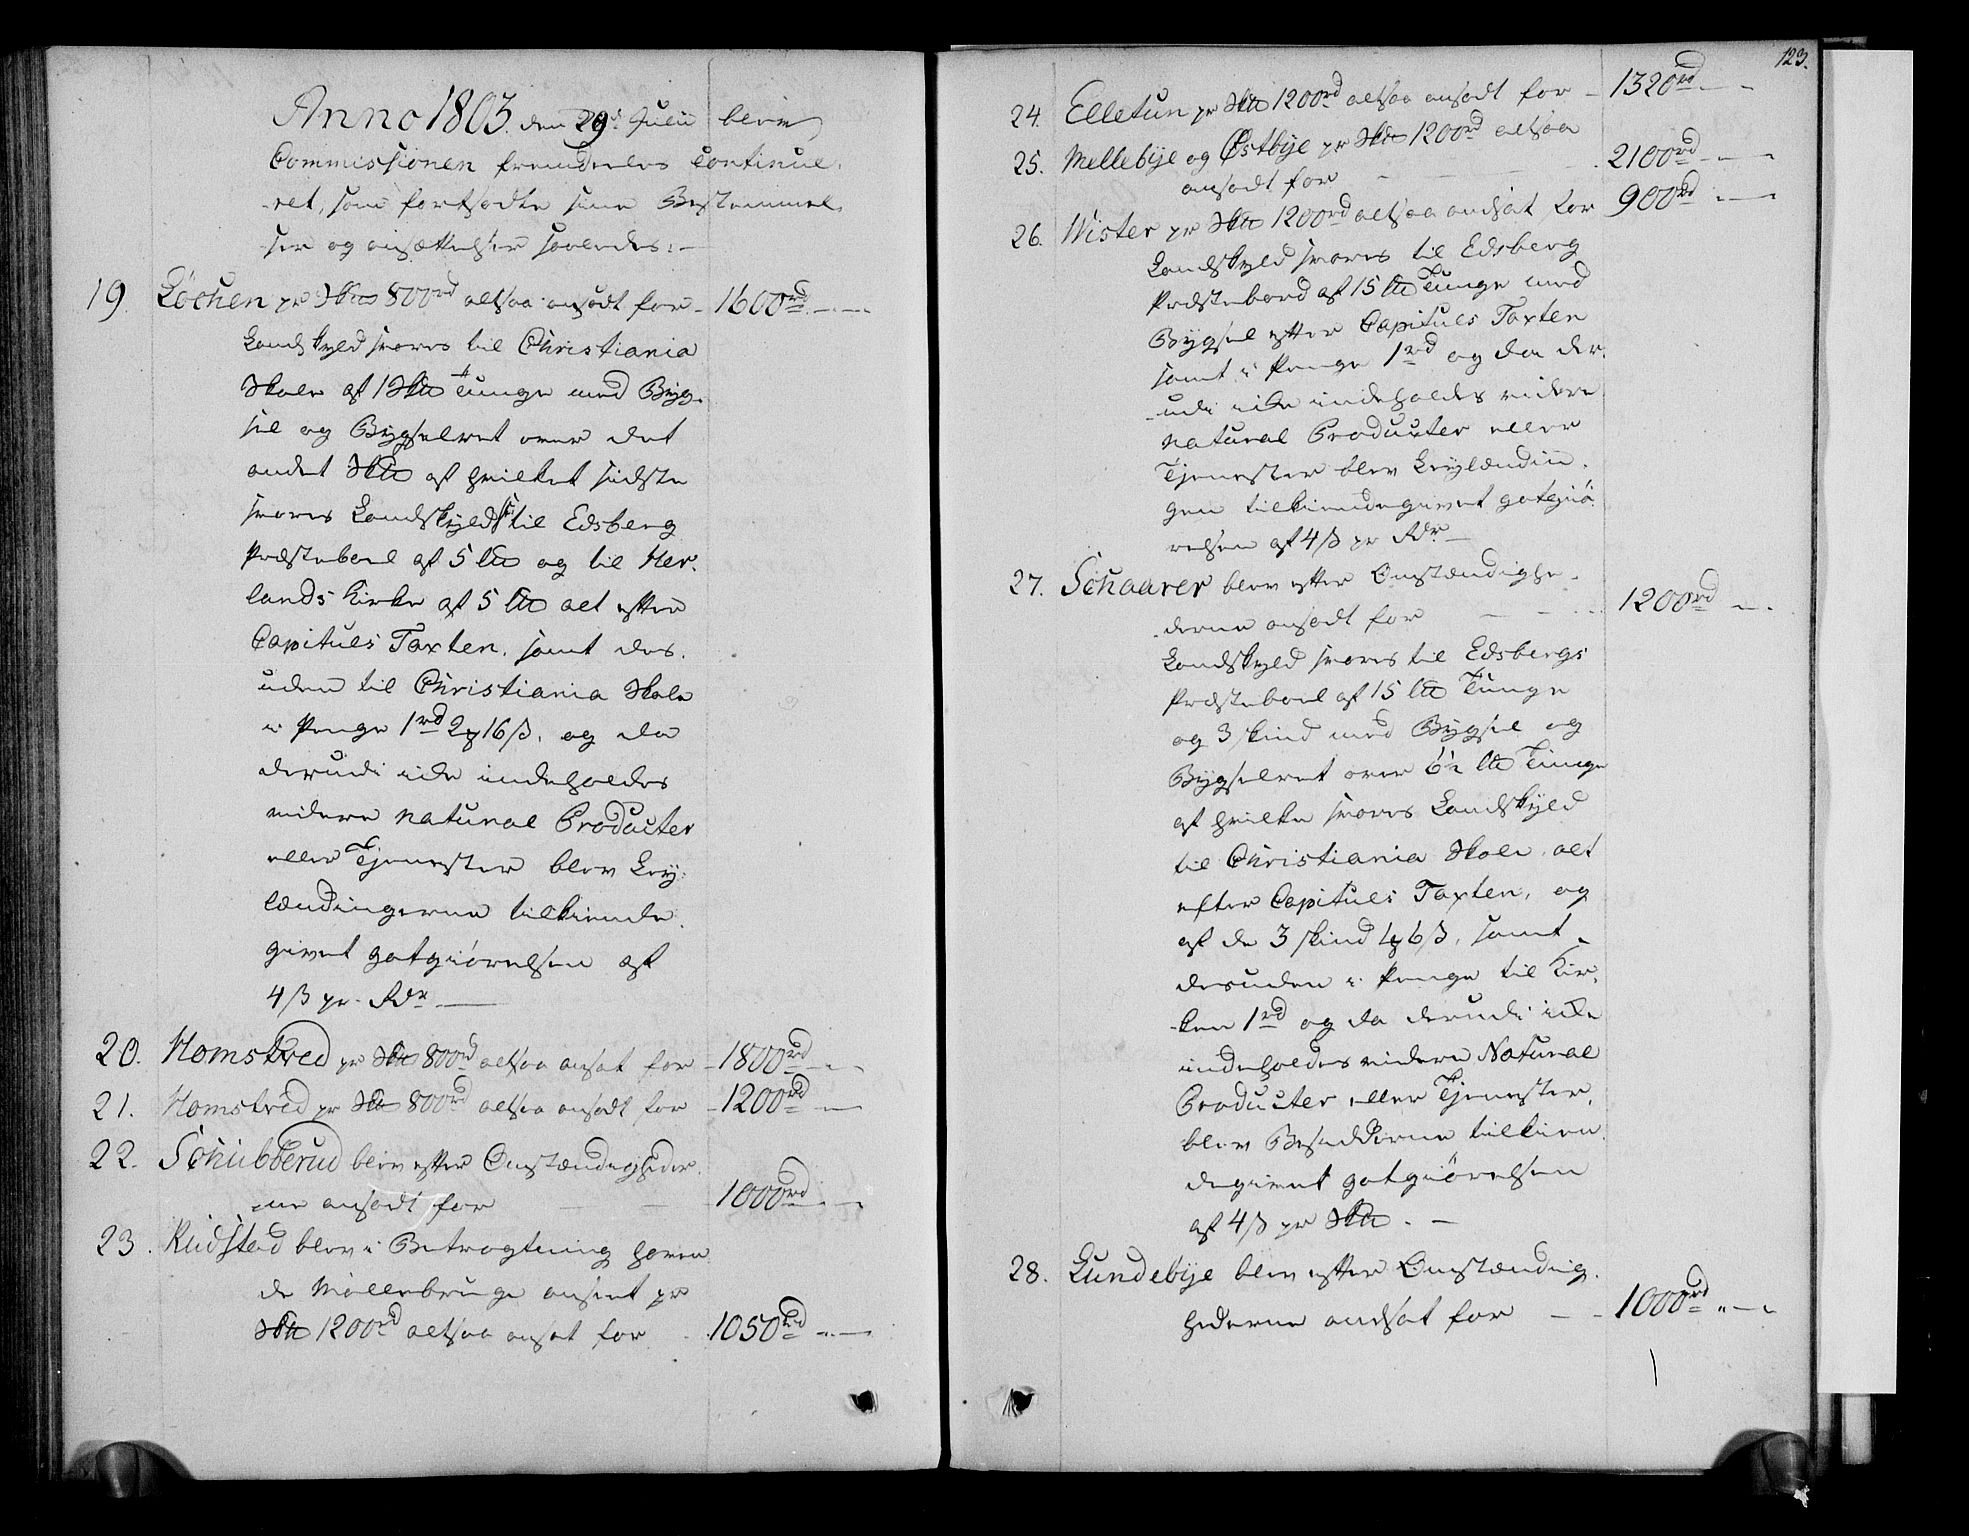 Anno 1803. den 29de Julii blev
Commissionen fremdeles Continue-
ret, som fortsadte sine Bestemmel-
ser og ansættelser saaledes:
19. Lochen pr Skt 800rd altsaa ansadt for 1600rd
Landskyld svares til Christiania
Skole af 1 Skt Tunge med Byg-
sel og Bygselret over det
andet Skt af hvilket sidste
svares Landskyld til Edsberg
Præsteboel af 5 Lt og til Her-
lands Kirke af 5 Lt alt efter
Capituls Taxten, samt des-
uden til Christiania Skole
i Penge 1rd 2 16 ß, og da
derudi icke indeholdes
videre natural Producter
eller Tjenester blev Ley-
lændingerne tilkiende-
givet godtgiørelsen af
4 ß pr. Rdr
20. Homstved pr Skt 800rd altsaa ansat for 1800rd
21. Homstved pr Skt 800rd altsaa ansadt for 1200rd
22. Schubberud blev efter Omstændigheder-
ne ansadt for 1000rd
23. Rudstad blev i Betragtning haven-
de Møllebruge ansat pr
Skt 1200rd altsaa ansat for 1050rd
123.
24. Elletun pr Skt 1200rd altsaa ansadt for 1320rd
25. Mellebye og Østbye pr Skt 1200rd altsaa
ansadt for 2100rd
26. Wister pr Skt 1200rd altsaa andsat for 900rd
Landskyld svares til Edsberg
Præstebord af 15 Lt Tunge med
Bygsel efter Capituls Taxten
samt i Penge 1rd og da der-
udi icke indeholdes videre
natural Producter eller
Tjenester blev Leylændin-
gen tilkiendegivet godtgiø-
relsen af 4 ß pr Rdr
27. Schaarer blev efter Omstændighe-
derne ansadt for 1200rd
Landskyld svares til Edsbergs
Præsteboel af 15 Lt Tunge
og 3 skind med Bygsel og
Bygselret over 6½ Lt Tunge
af hvilke svares Landskyld
til Christiania Skole alt
efter Capituls Taxten, og
af de 3 skind 1 6 ß, samt
desuden i Penge til Kir-
ken 1rd og da derudi icke
indeholdes videre Natural
Producter eller Tjenester,
blev Besidderne tilkien-
degivet godtgiørelsen
af 4 ß pr Skt.
28. Lundebye blev efter Omstændig-
hederne andsat for 1000rd